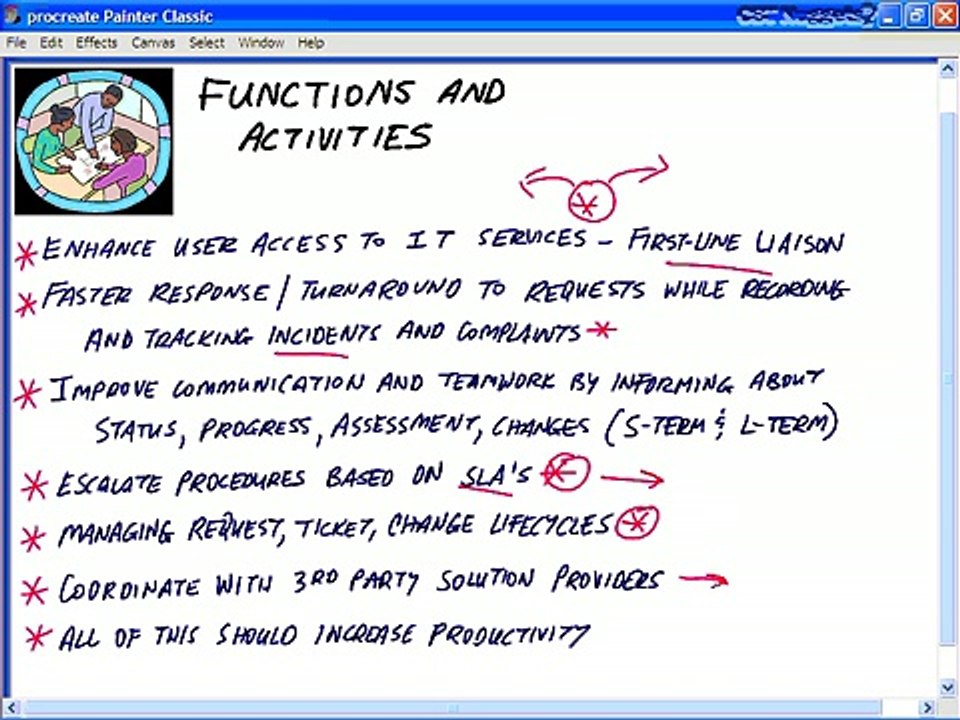 procreate Painter Classic
File Edit Effects Canvas Select Window Help
FUNCTIONS AND
ACTIVITIES
* ENHANCE USER ACCESS TO IT SERVICES - FIRST-LINE LIAISON
* FASTER RESPONSE / TURNAROUND TO REQUESTS WHILE RECORDING
AND TRACKING INCIDENTS AND COMPLAINTS *
* IMPROVE COMMUNICATION AND TEAMWORK BY INFORMING ABOUT
STATUS, PROGRESS, ASSESSMENT, CHANGES (S-TERM & L-TERM)
* ESCALATE PROCEDURES BASED ON SLA'S * →
* MANAGING REQUEST, TICKET, CHANGE LIFECYCLES *
* COORDINATE WITH 3RD PARTY SOLUTION PROVIDERS →
* ALL OF THIS SHOULD INCREASE PRODUCTIVITY